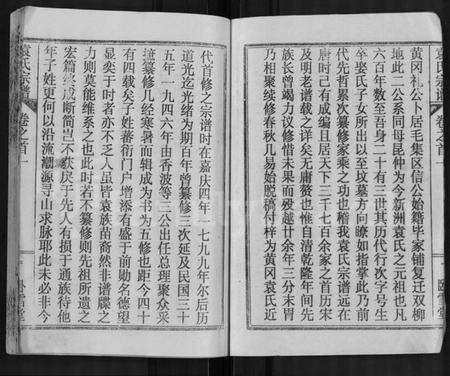 袁氏宗谱 卷之首
黄冈县公卜居毛集区信公始籍毕家铺复迁双柳
地此二公系同母昆仲为今新洲袁氏之元祖也凡
六百年数至吾身二十有三世其历代行次字号生
卒娶氏子女所出以至坟墓方向瞭如指掌此乃前
代先哲累次纂修家乘之功也稽我袁氏宗谱远在
唐时己有成编且居天下三千七百余家之首历宋
及明老谱载之详矣无庸赘也惟自清乾隆年间先
族长曾竭力议修惜未果而殁越廿余年三分末胄
的相聚续修春秋几易始脱稿付梓为黄冈袁氏近
代首修之宗谱时在嘉庆四年一七九九年尔后历
道光迄光绪为期百年曾纂修三次延及民国三十
五年一九四六年由香波等三公出任总理聚众采
访纂修几经寒暑而辑成为书为五修也距今四十
有四载矣子姓蕃衍门户增添蓄有盛于前勋名德望
显奕于时者亦不乏人虽皆袁族苗裔然非谱牒之
力则莫能维系之也此时若不纂修则先祖所遗之
宏篇 成断简岂不获戾于先人有损于通族待他
年子姓更何以沿流溯源寻山求脉耶此未必非今
袁氏宗谱 卷之首 卧雪堂
卧雪堂